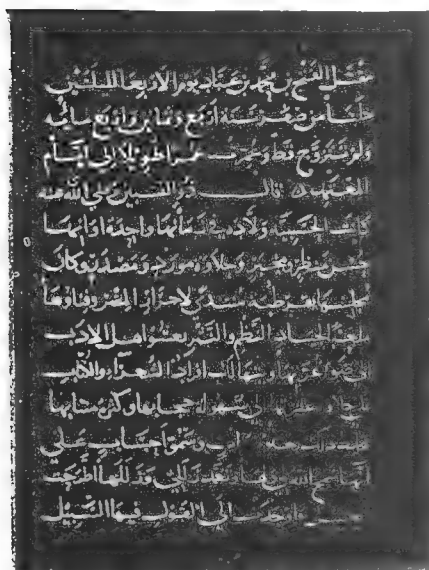 مقتل الفتح بن محمد بن عباد يوم الاربعا لليلتين
خلتا من صفر سنة اربع وثمانين واربع مائه
ولم تتزوج قط وعمرت عمرا طويلا الى ايام
المعتمد قالت رضي الله عنه
كانت الحسيبة ولادة في زمانها واحدة اوانها
حسن منظر ومخبر وحلاوة مورد ومصدر وكان
مجلسها بقرطبة منتدى لاحرار المصر وفناؤها
ملعبا لجياد النظم والنثر يعشو اهل الادب
الى ضوء غرتها ويتهالك افراد الشعراء والكتاب
على حلاوة عشرتها الى سهولة حجابها وكثرة منتابها
وسمو احساب على
انها سمح الله لها وتغمد زللها اطرحت
الى القول فيها السبيل